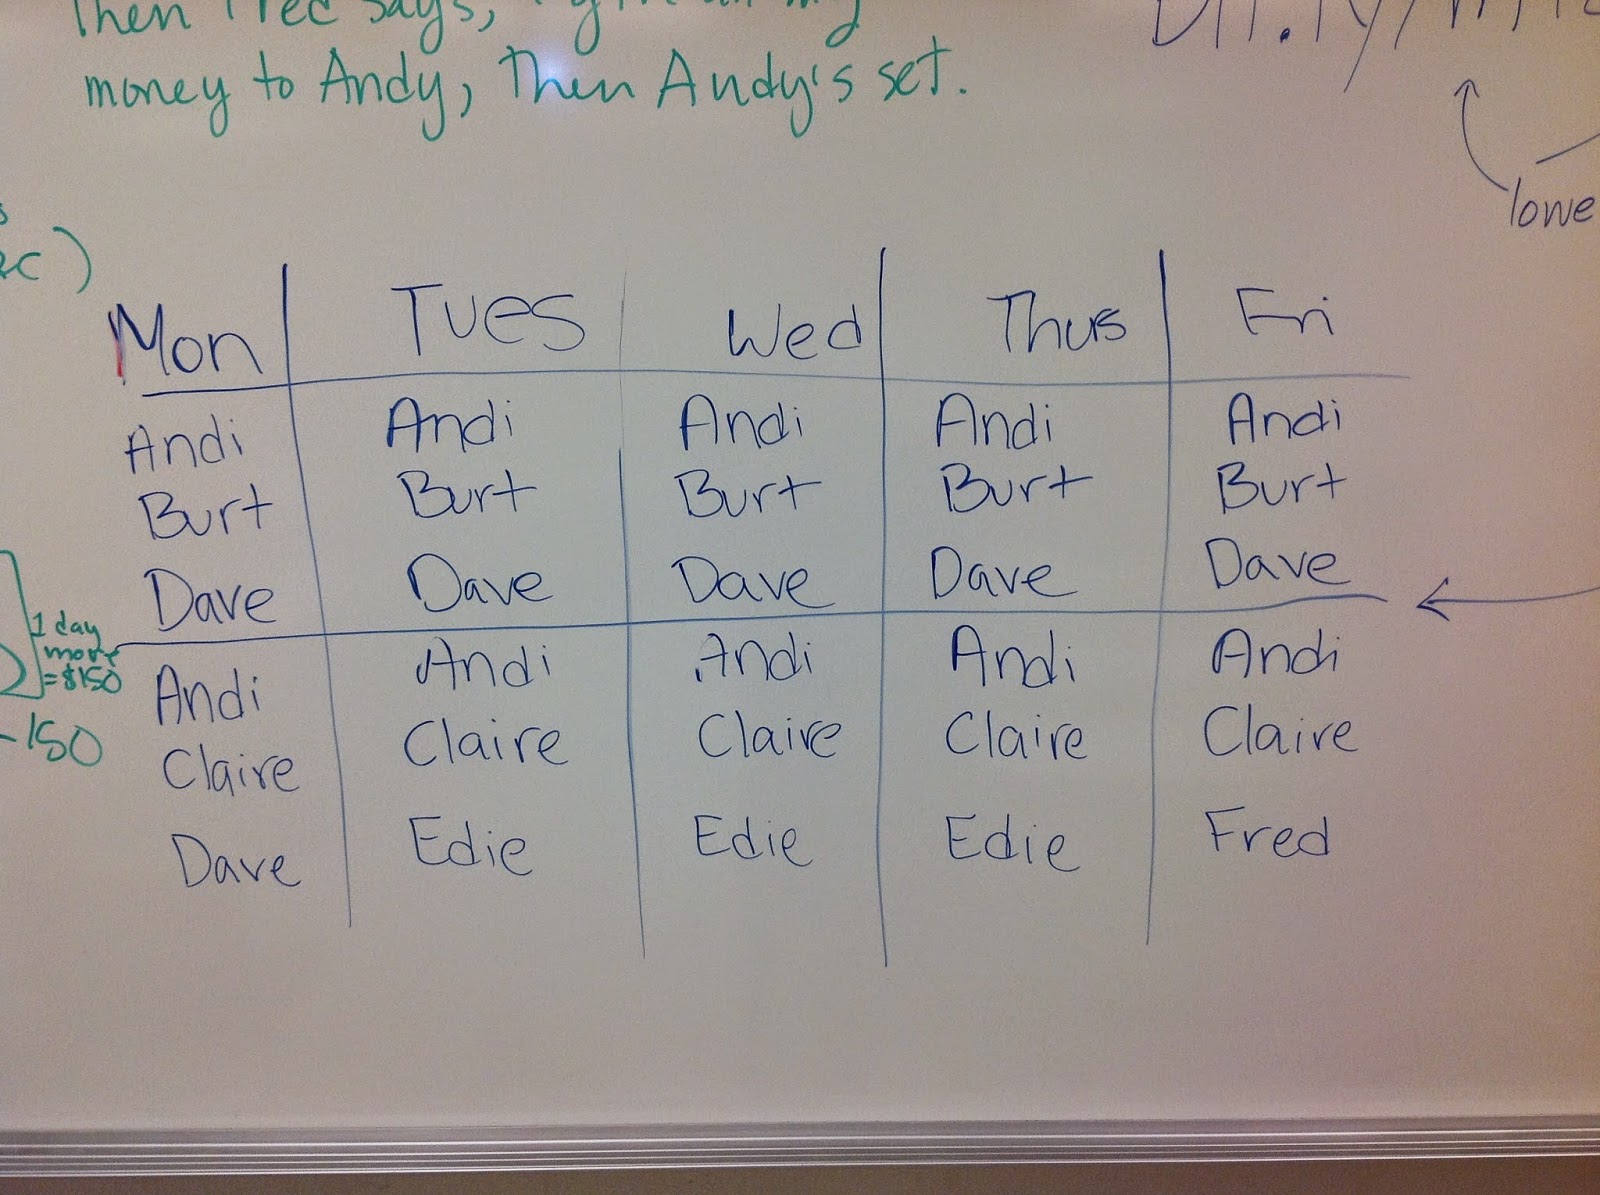 Then Fred says,
money to Andy, Then Andy's set.
lowe
Mon Tues Wed Thurs Fri
Andi Andi Andi Andi Andi
Burt Burt Burt Burt Burt
Dave Dave Dave Dave Dave
1 day
more
=$150
-150
Andi Andi Andi Andi Andi
Claire Claire Claire Claire Claire
Dave Edie Edie Edie Fred